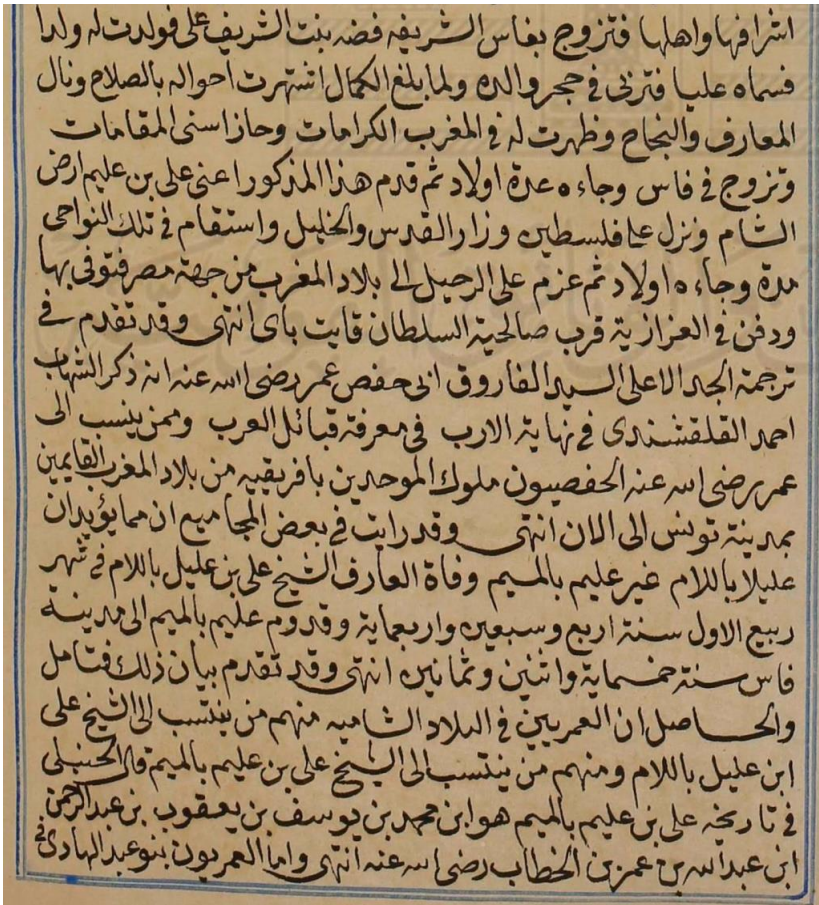 اشرافها واهلها فتزوج بفاس الشريفه فضه بنت الشريف على فولدت له ولدا
فسماه عليا فتربى في حجر والده ولما بلغ الكمال اشتهرت احواله بالصلاح ونال
المعارف والنجاح وظهرت له في المغرب الكرامات وحاز اسنى المقامات
وتزوج في فاس وجاءه عدة اولاد ثم قدم هذا المذكور اعنى على بن عليم ارض
الشام ونزل على فلسطين وزار القدس والخليل واستقام في تلك النواحى
مدة وجاءه اولاد ثم عزم على الرحيل الى بلاد المغرب من جهة مصر فتوفى بها
ودفن في العزازية قرب صالحية السلطان قايت باى انتهى وقد تقدم في
ترجمة الجد الاعلى السيد الفاروق ابى حفص عمر رضى الله عنه انه ذكر الشهاب
احمد القلقشندى في نهاية الارب في معرفة قبائل العرب وممن ينسب الى
عمر رضى الله عنه الحفصيون ملوك الموحدين بافريقيه من بلاد المغرب القايمين
بمدينة تونس الى الان انتهى وقد رايت في بعض المجاميع ان مما يؤيد ان
عليلا باللام غير عليم بالميم وفاة العارف الشيخ على بن عليل باللام في شهر
ربيع الاول سنة اربع وسبعين واربعماية وقدوم عليم بالميم الى مدينة
فاس سنة خمسماية واثنين وثمانين انتهى وقد تقدم بيان ذلك فتامل
والحاصل ان العمريين في البلاد الشاميه منهم من ينتسب الى الشيخ على
ابن عليل باللام ومنهم من ينتسب الى الشيخ على بن عليم بالميم قال الحنبلى
في تاريخه على بن عليم بالميم هو ابن محمد بن يوسف بن يعقوب بن عبد الرحمن
ابن عبد الله بن عمر بن الخطاب رضى الله عنه انتهى واما العمريون بنو عبد الهادى في